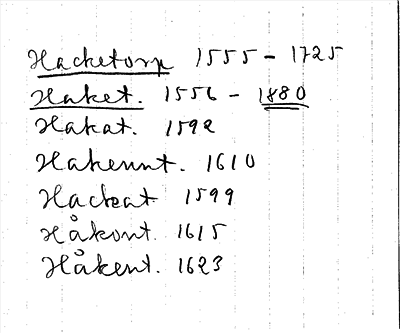 Hacketorp 1555 - 1725
Haket. 1556 - 1880
Hakat. 1592
Hakennt. 1610
Hackat 1599
Håkont. 1615
Håkent. 1623